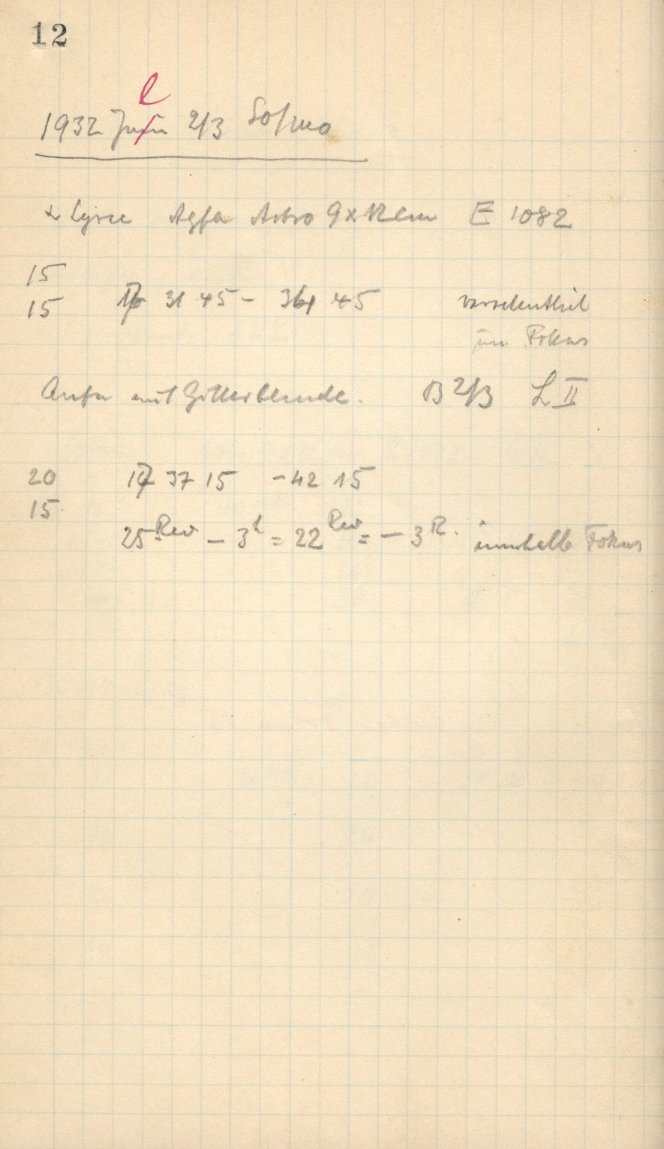 12
1932 Juli 2/3 So/Mo
α Lyrae Agfa Astro 9x12cm E 1082
15
15 31 45 - 36 45
im Fokus
Aufn mit Gitterblende. B 2/3 L II
20 37 15 - 42 15
15
25 Rev - 3 = 22 Rev = - 3 R. innerhalb Fokus